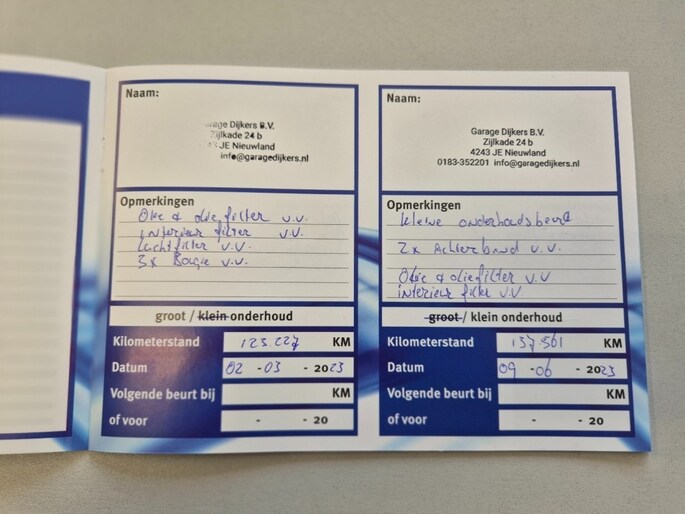 Naam:
Garage Dijkers B.V.
Zijlkade 24 b
JE Nieuwland
info@garagedijkers.nl
Opmerkingen
Olie & oliefilter v.v.
interieur filter v.v.
Luchtfilter v.v.
3x Bougie v.v.
groot / klein onderhoud
Kilometerstand 123.227 KM
Datum 02 - 03 - 2023
Volgende beurt bij KM
of voor - - 20
Naam:
Garage Dijkers B.V.
Zijlkade 24 b
4243 JE Nieuwland
0183-352201 info@garagedijkers.nl
Opmerkingen
kleine onderhoudsbeurt
2x Achterband v.v.
Olie & oliefilter v.v
interieur filter v.v.
groot / klein onderhoud
Kilometerstand 137.561 KM
Datum 09 - 06 - 2023
Volgende beurt bij KM
of voor - - 20